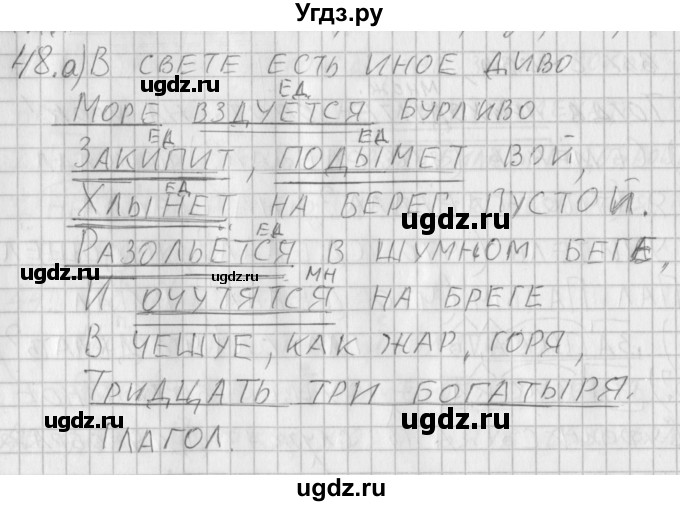 Угдз.ру
48.а) В СВЕТЕ ЕСТЬ ИНОЕ ДИВО
ЕД
МОРЕ ВЗДУЕТСЯ БУРЛИВО
ЕД ЕД
ЗАКИПИТ, ПОДЫМЕТ ВОЙ,
ЕД
ХЛЫНЕТ НА БЕРЕГ ПУСТОЙ.
ugdz.ru
ЕД
РАЗОЛЬЁТСЯ В ШУМНОМ БЕГЕ,
ugdz.ru ugdz.ru
МН
И ОЧУТЯТСЯ НА БРЕГЕ
В ЧЕШУЕ, КАК ЖАР, ГОРЯ,
ТРИДЦАТЬ ТРИ БОГАТЫРЯ.
ugdz.ru ugdz.ru
ГЛАГОЛ.
ugdz.ru